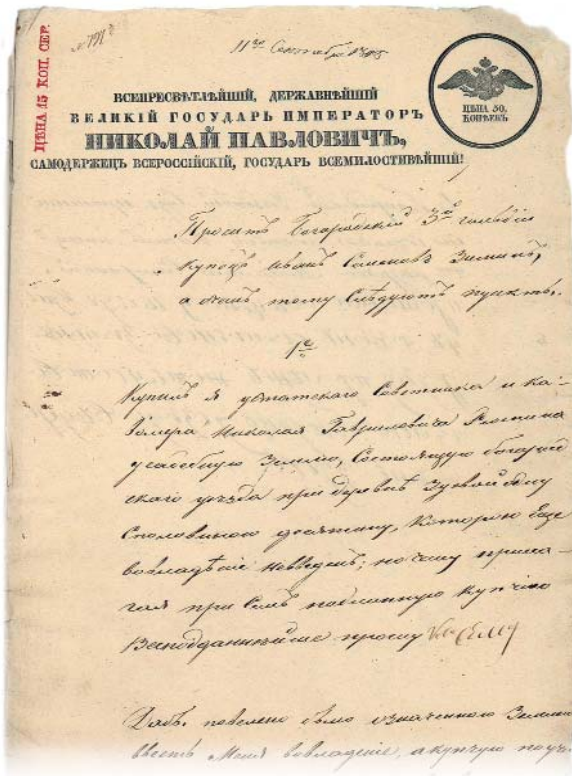 11го Сентября
ЦѢНА 15 КОП. СЕР.
ЦѢНА 50.
КОПѢЕКЪ
ВСЕПРЕСВѢТЛѢЙШІЙ, ДЕРЖАВНѢЙШІЙ
ВЕЛИКІЙ ГОСУДАРЬ ИМПЕРАТОРЪ
НИКОЛАЙ ПАВЛОВИЧЪ,
САМОДЕРЖЕЦЪ ВСЕРОССІЙСКІЙ, ГОСУДАРЬ ВСЕМИЛОСТИВѢЙШІЙ!
Проситъ Богородскій 3й гильдіи
купецъ Иванъ Зиминъ,
а о чемъ тому слѣдуютъ пункты.
1е
Купилъ я устатскаго Советника и ка-
валера Николая Гавриловича Рюмина
усадебную Землю, Состоящую богород
скаго уѣзда при деревнѣ Зуевой одну
Споловиною десятину, Которою Еще
вовладѣніе невведенъ; почему прила-
гая при Семъ подлинную купчую
Всеподданнѣйше прошу
Дабы повелено было означенною Землею
ввесть Меня вовладѣніе, а купчую